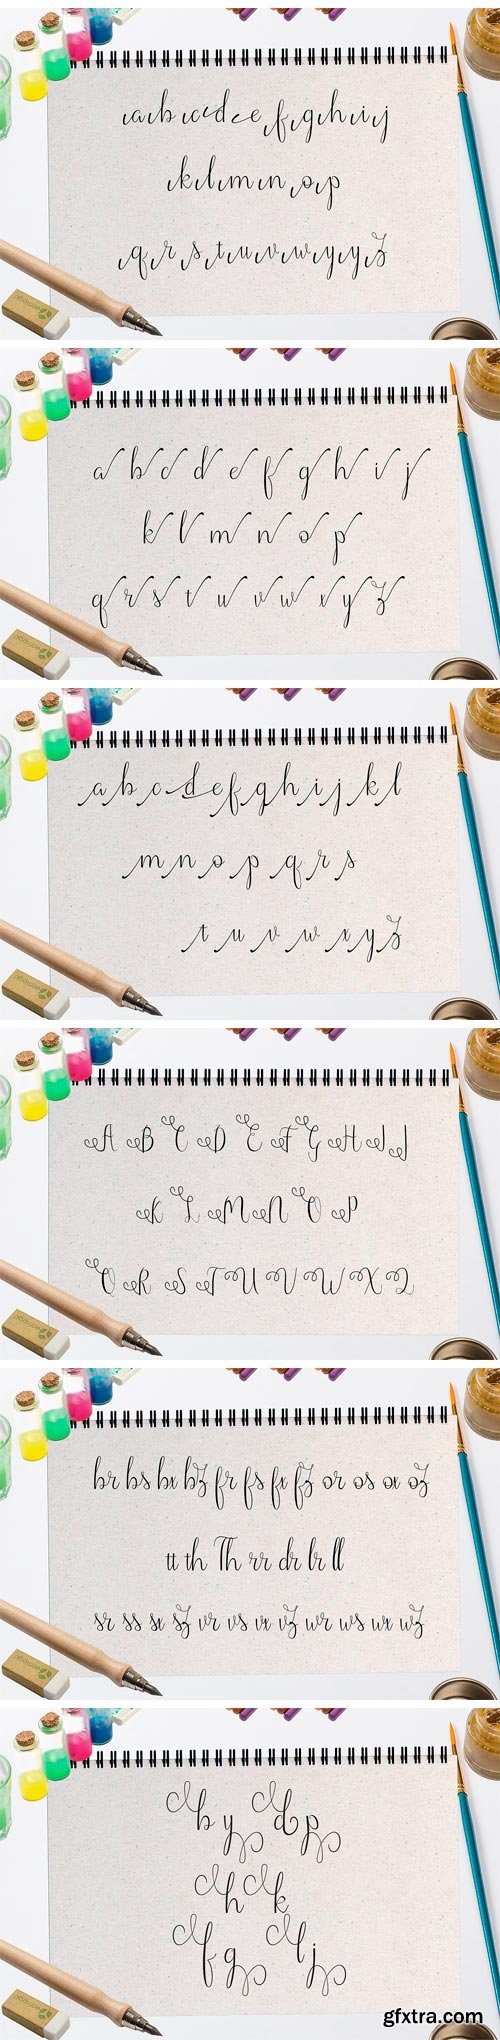 a b c d e f g h i j
k l m n o p
q r s t u v w y y z
a b c d e f g h i j
k l m n o p
q r s t u v w x y z
a b c d e f g h i j k l
m n o p q r s
t u v w x y z
A B C D E F G H I J
K L M N O P
Q R S T U V W X Z
br bs bx bz fr fs fx fz or os ox oz
tt th Th rr dr lr ll
sr ss sx sz vr vs vx vz wr ws wx wz
b y d p
h k
f g l j
ecologic
ecologic
ecologic
ecologic
ecologic
ecologic
gfxtra.com